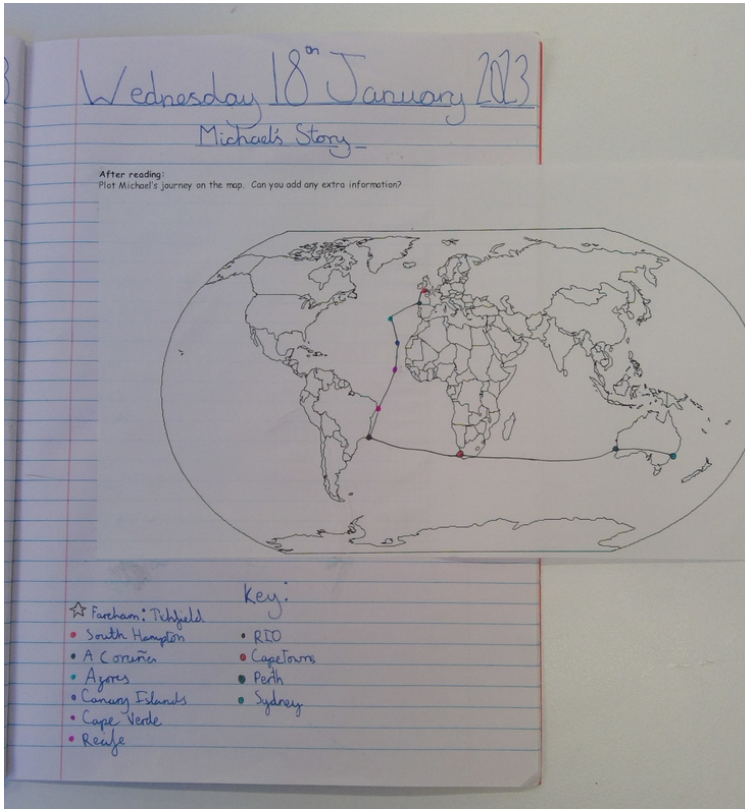 Wednesday 18th January 2023
Michael's Story
After reading:
Plot Michael's journey on the map. Can you add any extra information?
Key:
Fareham: Titchfield
South Hampton
A Coruña
Azores
Canary Islands
Cape Verde
Recife
RIO
CapeTowns
Perth
Sydney